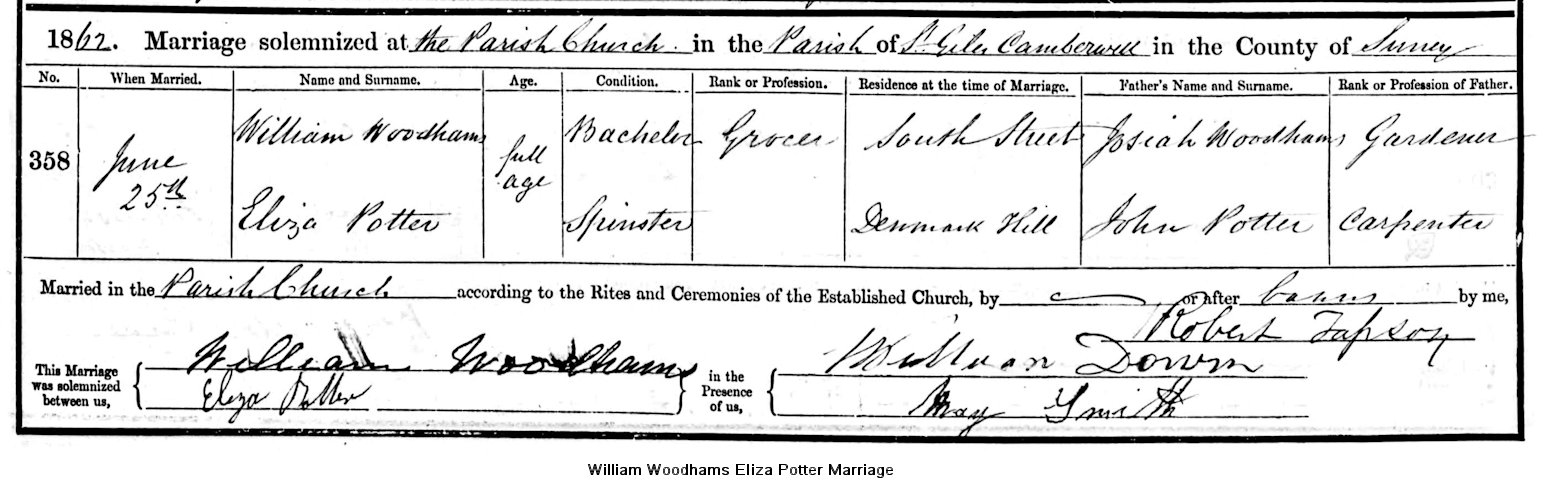 1862. Marriage solemnized at the Parish Church in the Parish of St. Giles Camberwell in the County of Surrey
No. When Married. Name and Surname. Age. Condition. Rank or Profession. Residence at the time of Marriage. Father's Name and Surname. Rank or Profession of Father.
358 June 25th William Woodhams full age Bachelor Grocer South Street Josiah Woodhams Gardener
Eliza Potter Spinster Denmark Hill John Potter Carpenter
Married in the Parish Church according to the Rites and Ceremonies of the Established Church, by , or after banns by me,
Robert Tapson
This Marriage was solemnized between us, William Woodhams in the Presence of us, William Down
Eliza Potter May Smith
William Woodhams Eliza Potter Marriage